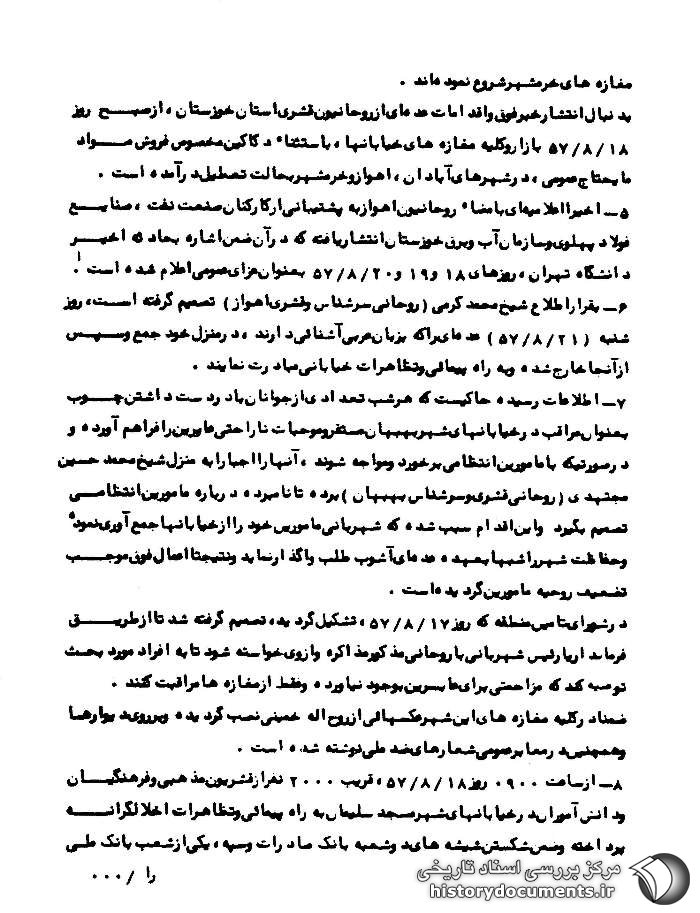 مغازه های خرمشهر شروع نموده‌اند .
بدنبال انتشار خبر فوق واقدامات عده‌ای از روحانیون قشری استان خوزستان ، از صبح روز
۵۷/۸/۱۸ بازار وکلیه مغازه های خیابانها ، باستثنا٬ دکاکین مخصوص فروش مواد
مایحتاج عمومی ، در شهرهای آبادان ، اهواز و خرمشهر بحالت تعطیل درآمده است .
۵ـ اخیرا اعلامیه‌ای بامضا٬ روحانیون اهواز به پشتیبانی از کارکنان صنعت نفت ، صنایع
فولاد پهلوی وسازمان آب وبرق خوزستان انتشار یافته که در آن ضمن اشاره بحادثه اخیر
دانشگاه تهران ، روزهای ۱۸ و ۱۹ و ۵۷/۸/۲۰ بعنوان عزای عمومی اعلام شده است .
۶ـ بقرار اطلاع شیخ محمد کرمی ( روحانی سرشناس وقشری اهواز ) تصمیم گرفته است ، روز
شنبه ( ۵۷/۸/۲۱ ) عده‌ای را که بزبان عربی آشنائی دارند ، در منزل خود جمع وسپس
از آنجا خارج شده وبه راه پیمائی وتظاهرات خیابانی مبادرت نمایند .
۷ـ اطلاعات رسیده حاکیست که هر شب تعدادی از جوانان بادر دست داشتن چوب
بعنوان مراقب در خیابانهای شهر بهبهان مستقر وموجبات ناراحتی عابرین را فراهم آورده و
در صورتیکه با مامورین انتظامی برخورد ومواجه شوند ، آنها را اجبارا به منزل شیخ محمد حسین
مجتهدی ( روحانی قشری وسرشناس بهبهان ) برده تا نامبرده درباره مامورین انتظامی
تصمیم بگیرد واین اقدام سبب شده که شهربانی مامورین خود را از خیابانها جمع آوری نموده
وحفاظت شهر را شبها بعهده عده‌ای آشوب طلب واگذار نماید ونتیجتا اعمال فوق موجب
تضعیف روحیه مامورین گردیده‌است .
در شورای تامین منطقه که روز ۵۷/۸/۱۷ ، تشکیل گردید، تصمیم گرفته شد تا از طریق
فرماندار یا رئیس شهربانی با روحانی مذکور مذاکره وازوی خواسته شود تا به افراد مورد بحث
توصیه کند که مزاحمتی برای عابرین بوجود نیاورده وفقط از مغازه ها مراقبت کنند .
ضمنا در کلیه مغازه های این شهر عکسهائی از روح اله خمینی نصب گردیده وبر روی دیوارها
وهمچنین در معابر عمومی شعارهای ضد ملی نوشته شده است .
۸ـ از ساعت ۰۹۰۰ روز ۵۷/۸/۱۸ ، قریب ۲۰۰۰ نفر از قشریون مذهبی وفرهنگیان
ودانش آموزان در خیابانهای شهر مسجد سلیمان به راه پیمائی وتظاهرات اخلالگرانه
پرداخته وضمن شکستن شیشه های دو شعبه بانک صادرات وسپه ، یکی از شعب بانک ملی
را /۰۰۰
مرکز بررسی اسناد تاریخی
historydocuments.ir